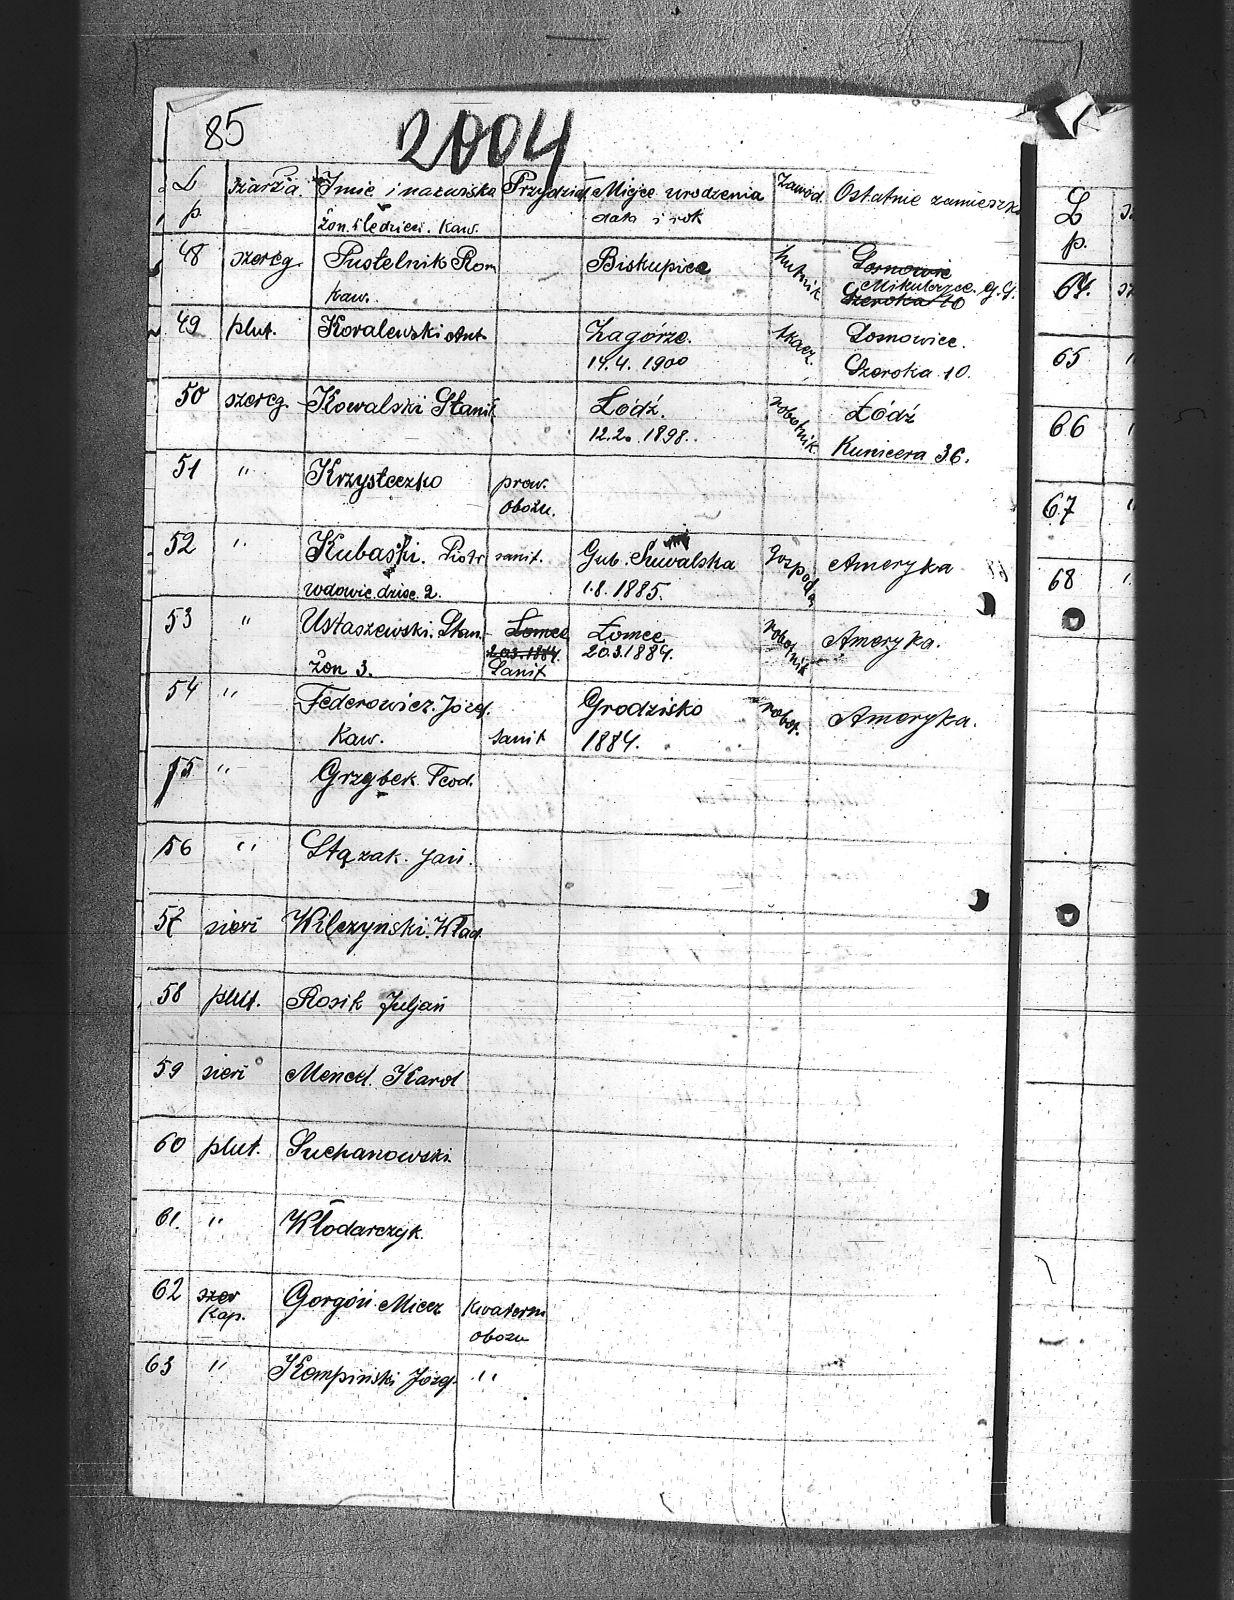 85
2004
L p. szarża. Imie i nazwiska Przydział Miejce urodzenia Zawód. Ostatnie zamieszk
żon. i lędzieci. Kaw. data i rok
48 szereg Pustelnik Rom Biskupice hutnik Sosnowie
kaw. Mikulczce. G.G.
Szeroka 10
49 plut. Kovalewski Ant. Zagórze. tkacz. Sosnowice.
14.4. 1900 Szeroka 10.
50 szereg. Kowalski Stanił Łódź. robotnik. Łódź
12.2. 1898. Kunicera 36.
51 " Krzysteczko prow.
obozu.
52 " Kubaski. Piotr sanit. Gub. Suwalska gospoda Ameryka
wdowic dziec 2. 1.8.1885.
53 " Ustaszewski. Stan. Łomce Łomce robotnik Ameryka.
20.3.1884. 20.3.1884.
żon 3. Sanit
54 " Federowicz. Józef. Grodzisko robot. Ameryka.
Kaw. sanit 1884.
55 " Grzybek Teod.
56 " Stązak. Jan.
57 sierż Wilczyński. Wład.
58 plut. Rosik Juljan
59 sierż Mencel. Karol
60 plut. Suchanowski.
61. " Włodarczyk.
62 szer Gorgóń Miecz Kwaterm
Kap. obozu
63 " Kompiński Józef. "
L
p.
64. sz
65 "
66 "
67 "
68 "